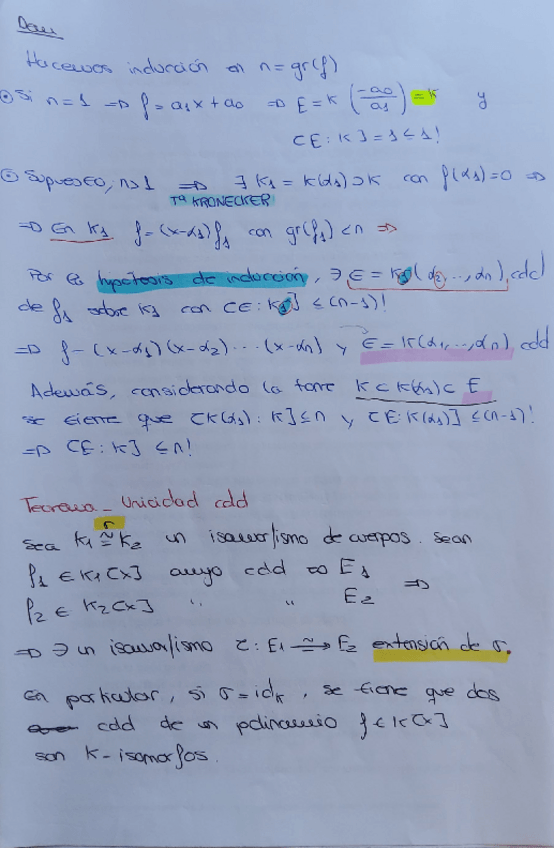 Dem
Hacemos inducción en n = gr(f)
⊙ Si n=1 ⇒ f = a₁x + a₀ ⇒ E = K (-a₀/a₁) = K y
[E:K] = 1 ≤ 1!
⊙ Supuesto, n>1 ⇒ ∃ K₁ = K(α₁) ⊃ K con f(α₁)=0 ⇒
Tª KRONECKER
⇒ En K₁ f = (x-α₁)f₁ con gr(f₁) < n ⇒
Por la hipótesis de inducción, ∃ E = K₁(α₂,...,αn) cdd
de f₁ sobre K₁ con [E:K₁] ≤ (n-1)!
⇒ f = (x-α₁)(x-α₂)···(x-αn) y E = K(α₁,...,αn) cdd
Además, considerando la torre K ⊂ K(α₁) ⊂ E
se tiene que [K(α₁):K] ≤ n y [E:K(α₁)] ≤ (n-1)!
⇒ [E:K] ≤ n!
Teorema - Unicidad cdd
Sea K₁ ≅ K₂ un isomorfismo de cuerpos. Sean
σ
f₁ ∈ K₁[x] cuyo cdd es E₁
⇒
f₂ ∈ K₂[x] " " E₂
⇒ ∃ un isomorfismo τ: E₁ ⥲ E₂ extensión de σ.
En particular, si σ = id_K, se tiene que dos
cdd de un polinomio f ∈ K[x]
son K-isomorfos.